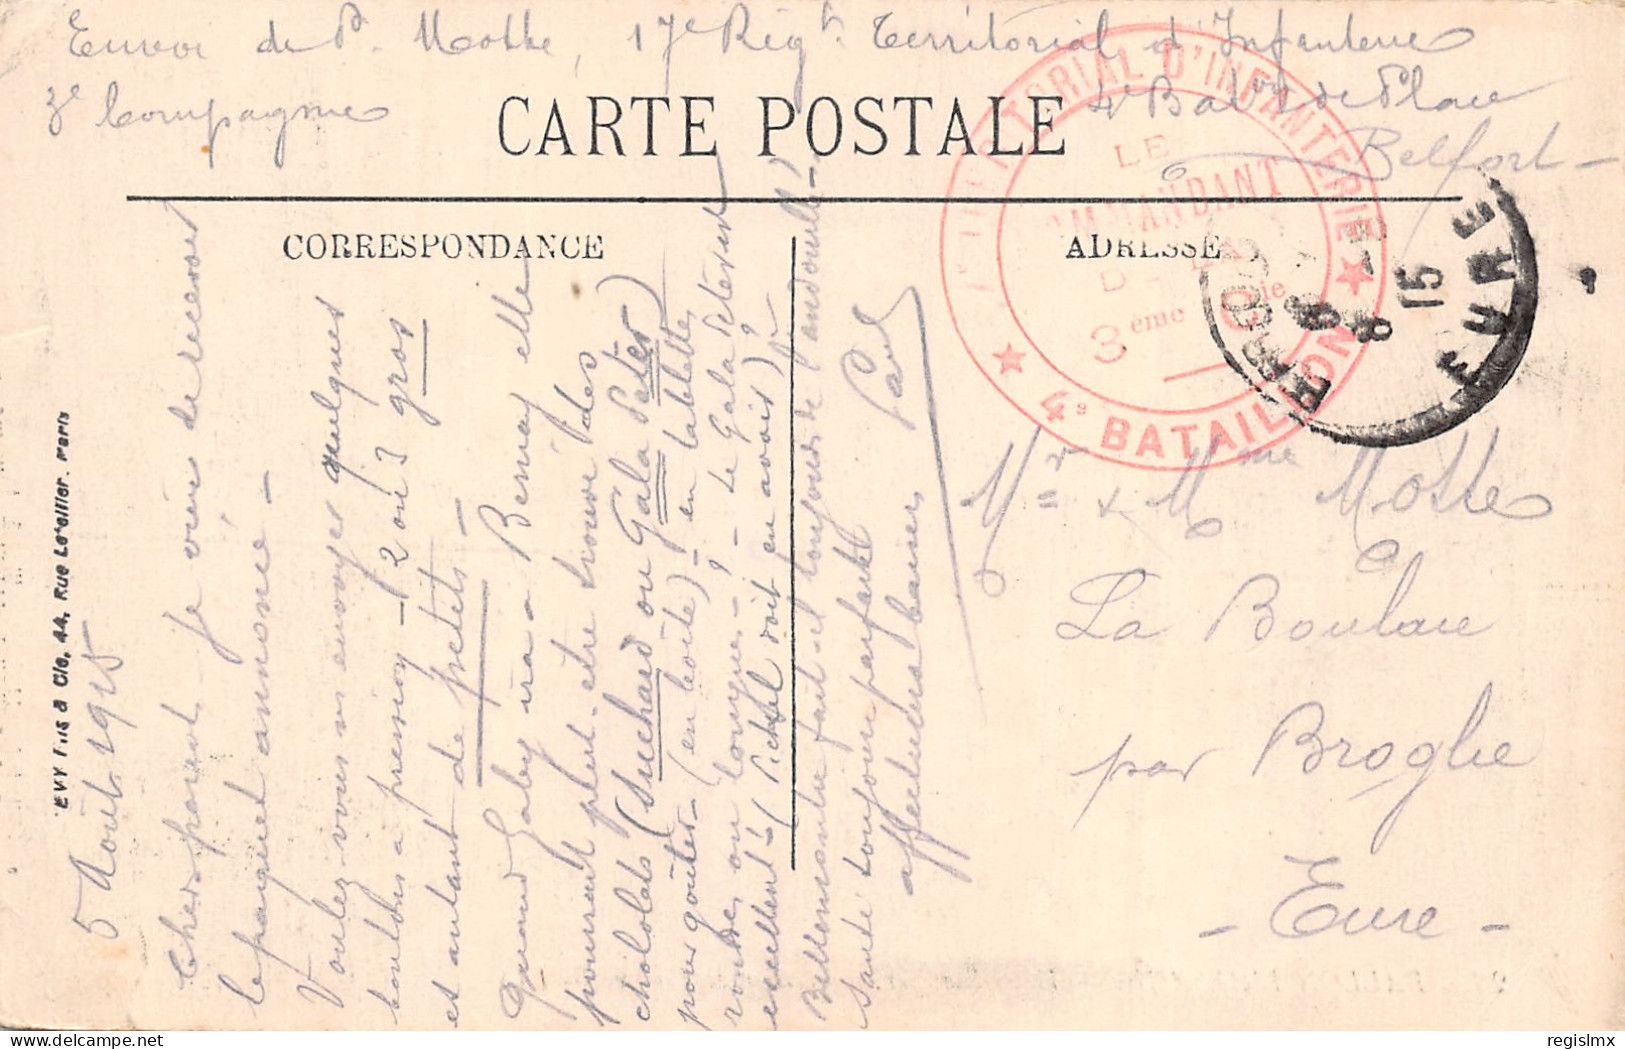 Envoi de P. Motte, 17e Régt. Territorial d'Infanterie
3e Compagnie
4e Baton de Place
Belfort -
CARTE POSTALE
CORRESPONDANCE
ADRESSE
TERRITORIAL D'INFANTERIE
LE
COMMANDANT
DE LA
3ème Cie
★ 4e BATAILLON ★
BROGLIE
8-8
15
EURE
LEVY Fils & Cie, 44, Rue Letellier. Paris
5 Août 1915
Chers parents Je viens de recevoir
le paquet annoncé -
Voulez-vous m'envoyer quelques
boutons à pression - 2 ou 3 gros
et autant de petits. -
Quand Gaby ira à Bernay elle
pourrait peut-être trouver des
chocolats (Suchard ou Gala Peter)
pour goûter - (en boîte) - en tablettes
rondes ou longues - ? - Le Gala Peter est
excellent - (Pichel doit en avoir) ?
Bellemontre fait-il toujours de l'andouille -
Santé toujours parfaite
affectueux baisers
Paul
Mr & Mme Motte
La Boulaie
par Broglie
- Eure -
regislmx